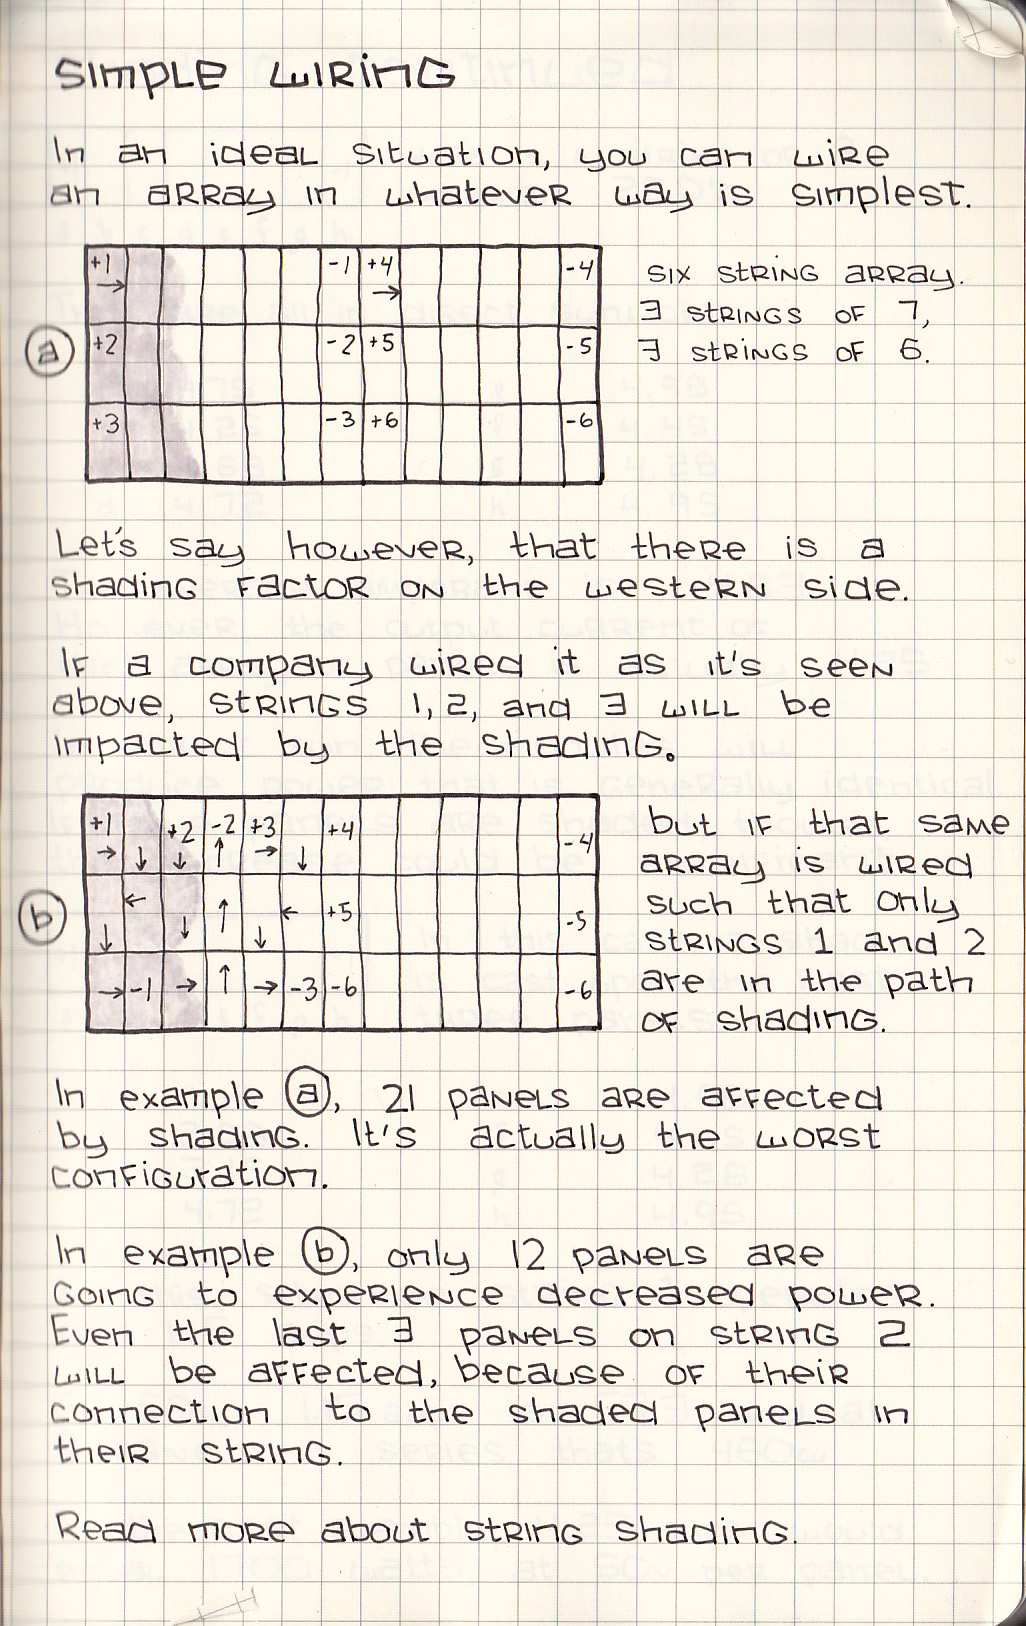 SIMPLE WIRING
In an ideal situation, you can wire
an array in whatever way is simplest.
+1 -1 +4 -4
→ →
a +2 -2 +5 -5
+3 -3 +6 -6
six string array.
3 strings of 7,
3 strings of 6.
Let's say however, that there is a
shading factor on the western side.
If a company wired it as it's seen
above, strings 1, 2, and 3 will be
impacted by the shading.
+1 +2 -2 +3 +4 -4
→ ↓ ↓ ↑ → ↓
b ↓ ← ↓ ↑ ↓ ← +5 -5
→ -1 → ↑ → -3 -6 -6
but if that same
array is wired
such that only
strings 1 and 2
are in the path
of shading.
In example a, 21 panels are affected
by shading. It's actually the worst
configuration.
In example b, only 12 panels are
going to experience decreased power.
Even the last 3 panels on string 2
will be affected, because of their
connection to the shaded panels in
their string.
Read more about string shading.